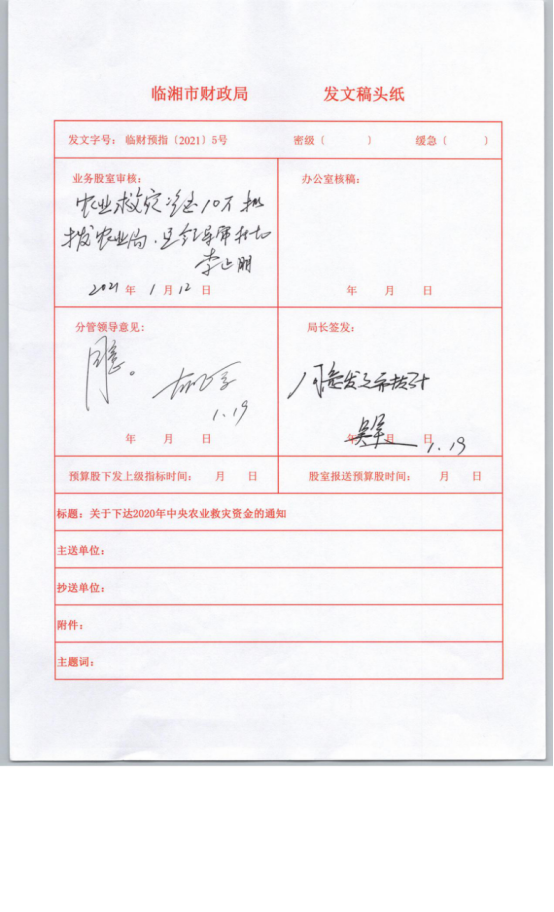 临湘市财政局 发文稿头纸
发文字号：临财预指〔2021〕5号 密级（ ） 缓急（ ）
业务股室审核：
农业救灾资金10万拟
拨农业局，呈领导审批
2021年1月12日
办公室核稿：
年 月 日
分管领导意见：
同意。
1.19
年 月 日
局长签发：
同意发文
1.19
年 月 日
预算股下发上级指标时间： 月 日 股室报送预算股时间： 月 日
标题：关于下达2020年中央农业救灾资金的通知
主送单位：
抄送单位：
附件：
主题词：